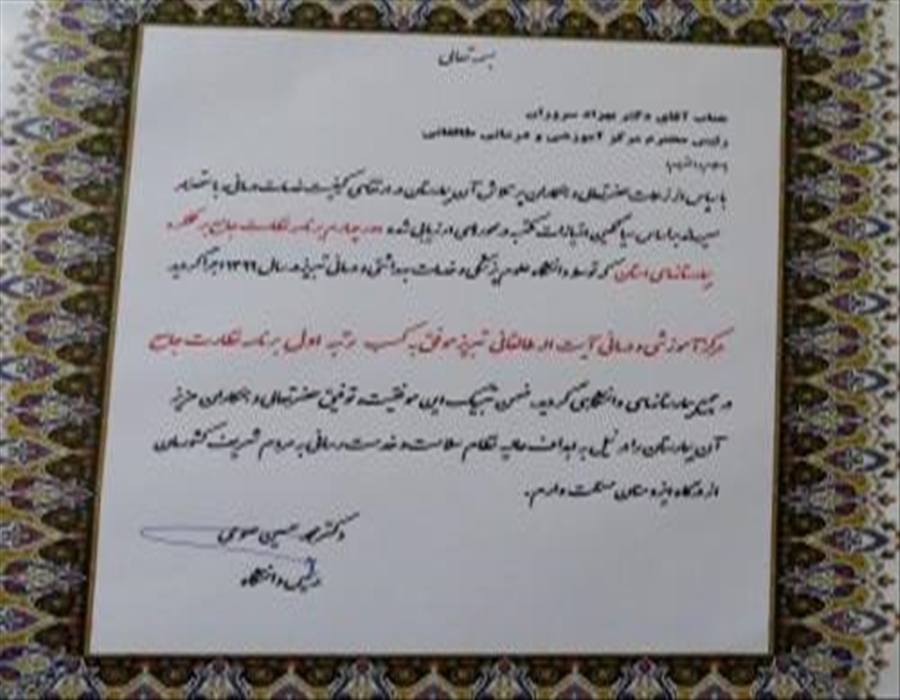 بسمه تعالی
جناب آقای دکتر بهزاد سروران
رئیس محترم مرکز آموزشی و درمانی طالقانی
با سپاس از زحمات حضرتعالی و همکاران پر تلاش آن بیمارستان در ارتقای کیفیت خدمات درمانی، با استحضار
میرساند براساس میانگین امتیازات مکتسبه در محورهای ارزیابی شده در چهارم برنامه نظارت جامع بر عملکرد
بیمارستانهای استان که توسط دانشگاه علوم پزشکی و خدمات بهداشتی و درمانی تبریز در سال ۱۳۹۹ اجرا گردید
مرکز آموزشی و درمانی آیت اله طالقانی تبریز موفق به کسب رتبه اول برنامه نظارت جامع
در بین بیمارستانهای دانشگاهی گردید. ضمن تبریک این موفقیت، توفیق حضرتعالی و همکاران عزیز
آن بیمارستان را در نیل به اهداف عالیه نظام سلامت و خدمت رسانی به مردم شریف کشورمان
از درگاه ایزد منان مسئلت دارم.
دکتر محمد حسین صومی
رئیس دانشگاه